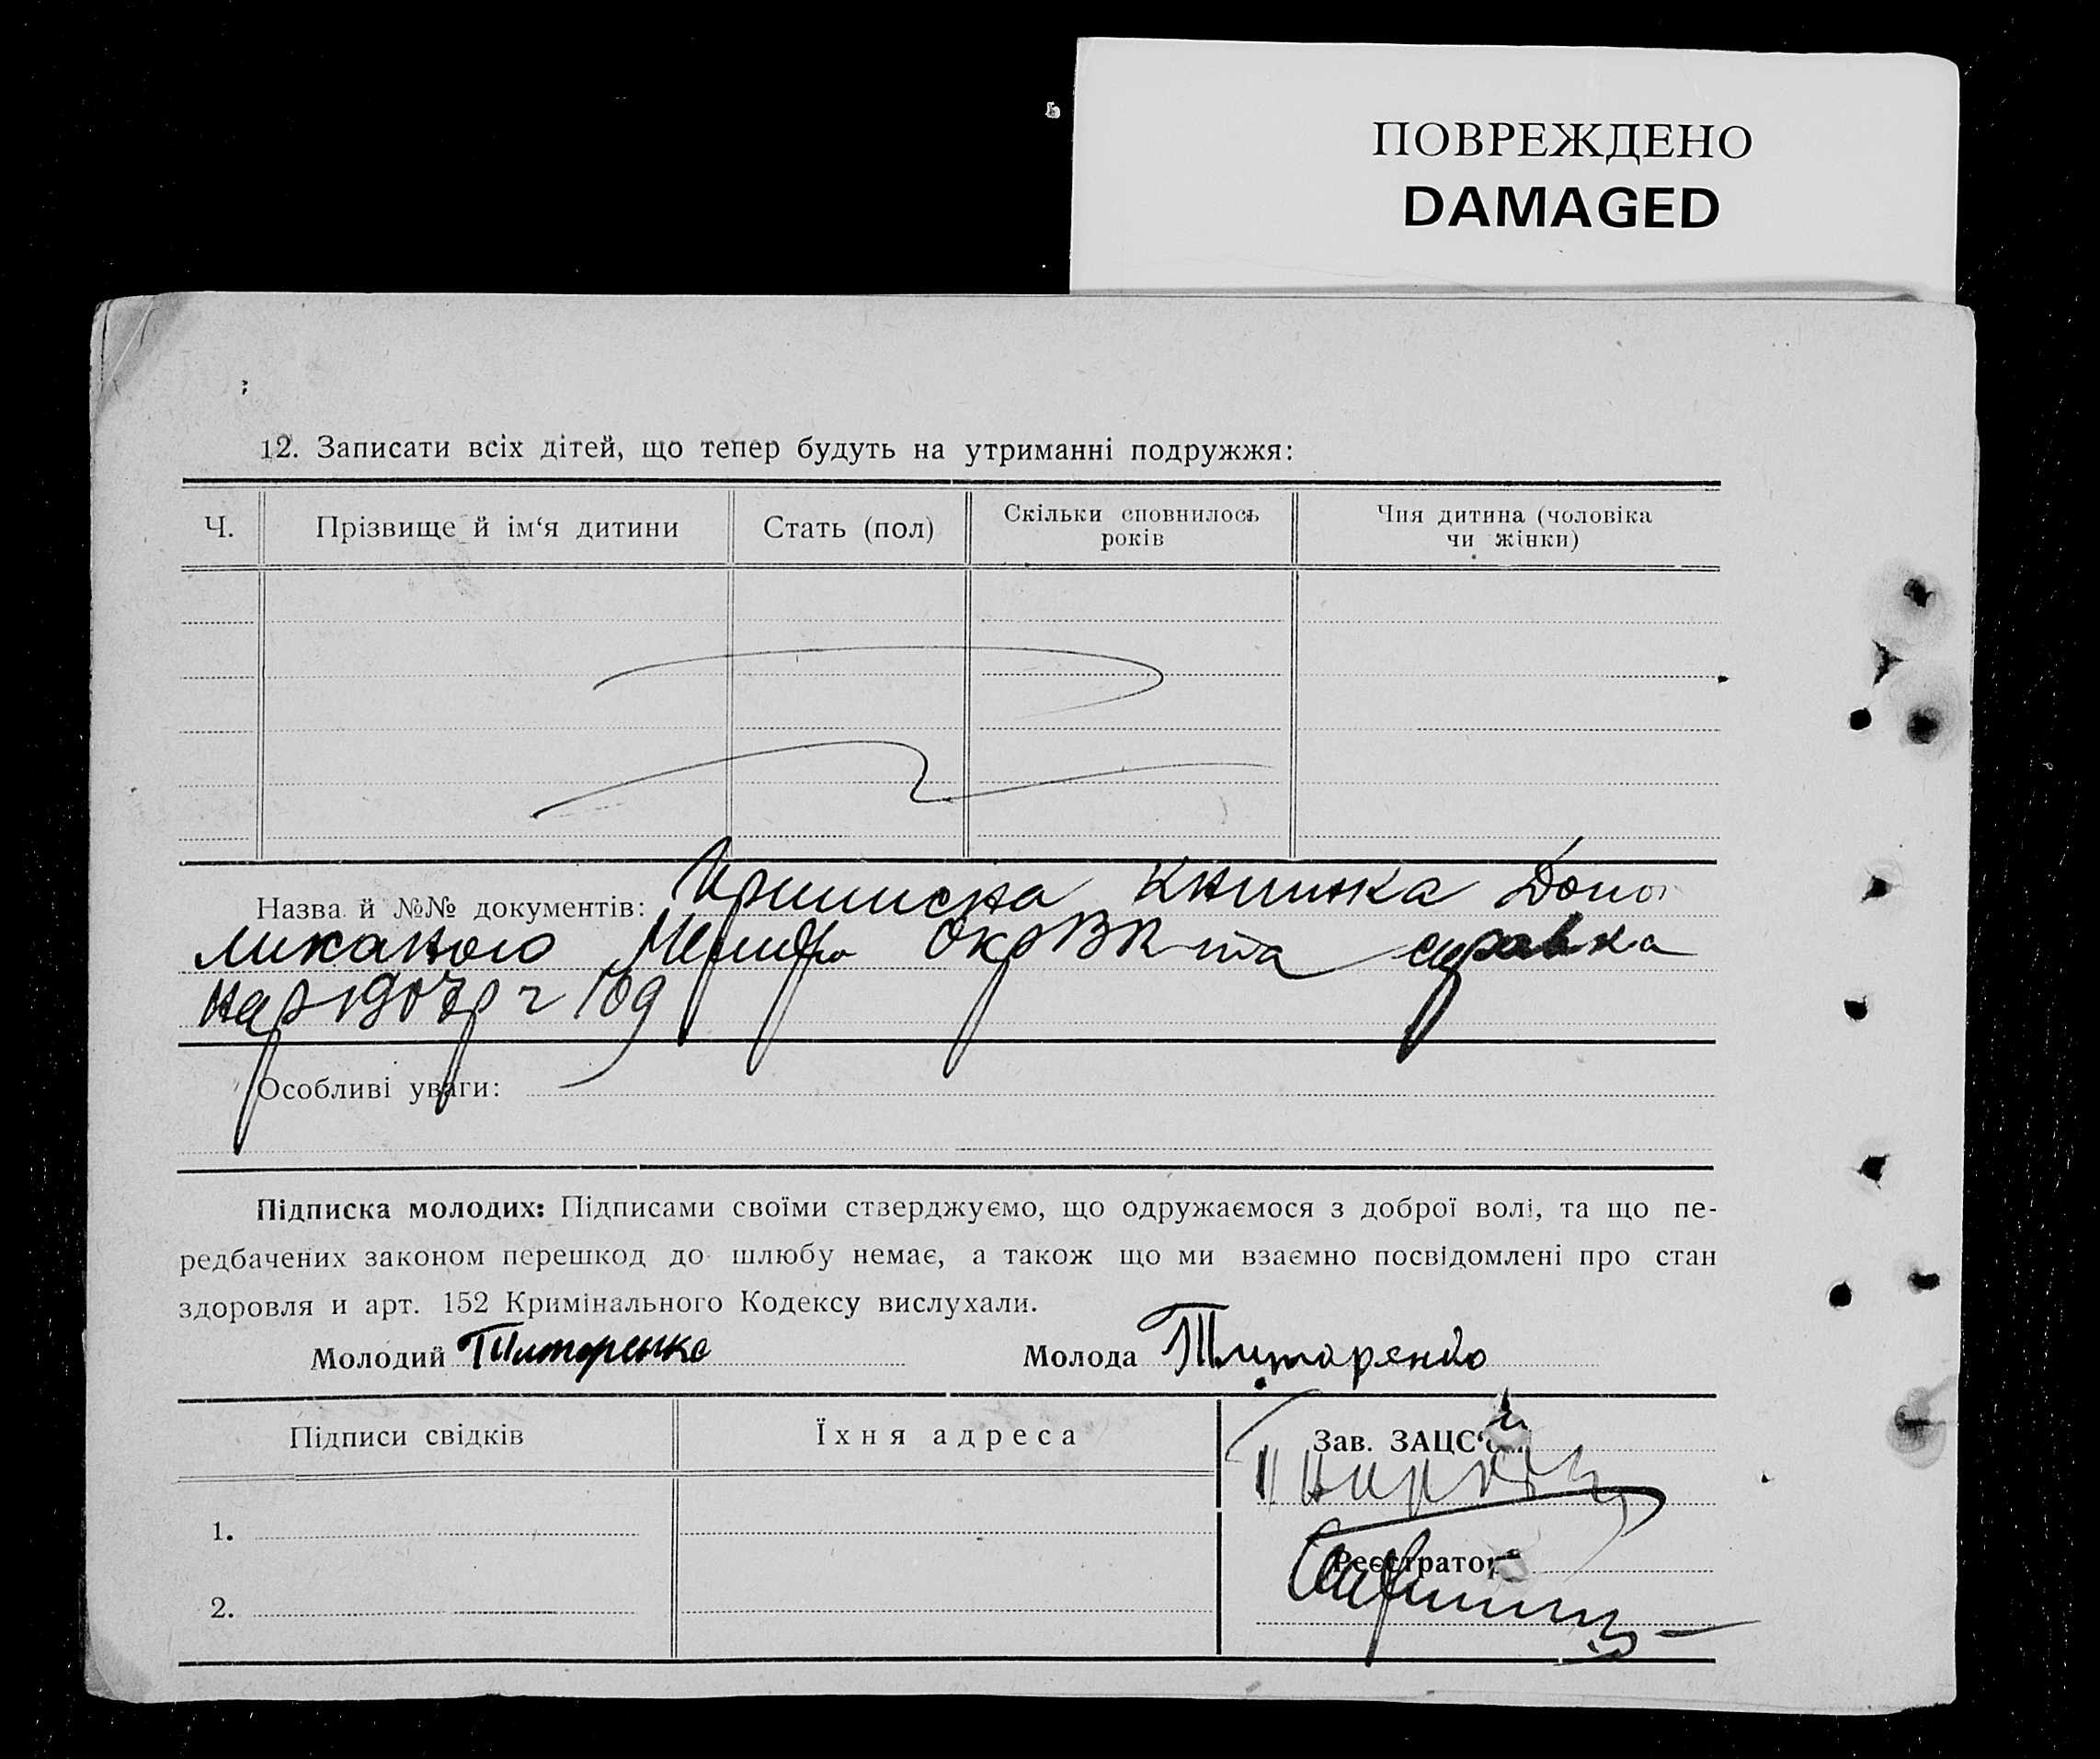 ПОВРЕЖДЕНО
DAMAGED
12. Записати всіх дітей, що тепер будуть на утриманні подружжя:
Ч.
Прізвище й ім‘я дитини
Стать (пол)
Скільки сповнилось
років
Чия дитина (чоловіка
чи жінки)
Назва й №№ документів: Приписна Книжка
ОкрВК та справка
Особливі уваги:
Підписка молодих: Підписами своїми стверджуємо, що одружаємося з доброї волі, та що пе-
редбачених законом перешкод до шлюбу немає, а також що ми взаємно посвідомлені про стан
здоровля и арт. 152 Кримінального Кодексу вислухали.
Молодий Титаренко
Молода Титаренко
Підписи свідків
Їхня адреса
Зав. ЗАЦС‘
Реєстратор
1.
2.